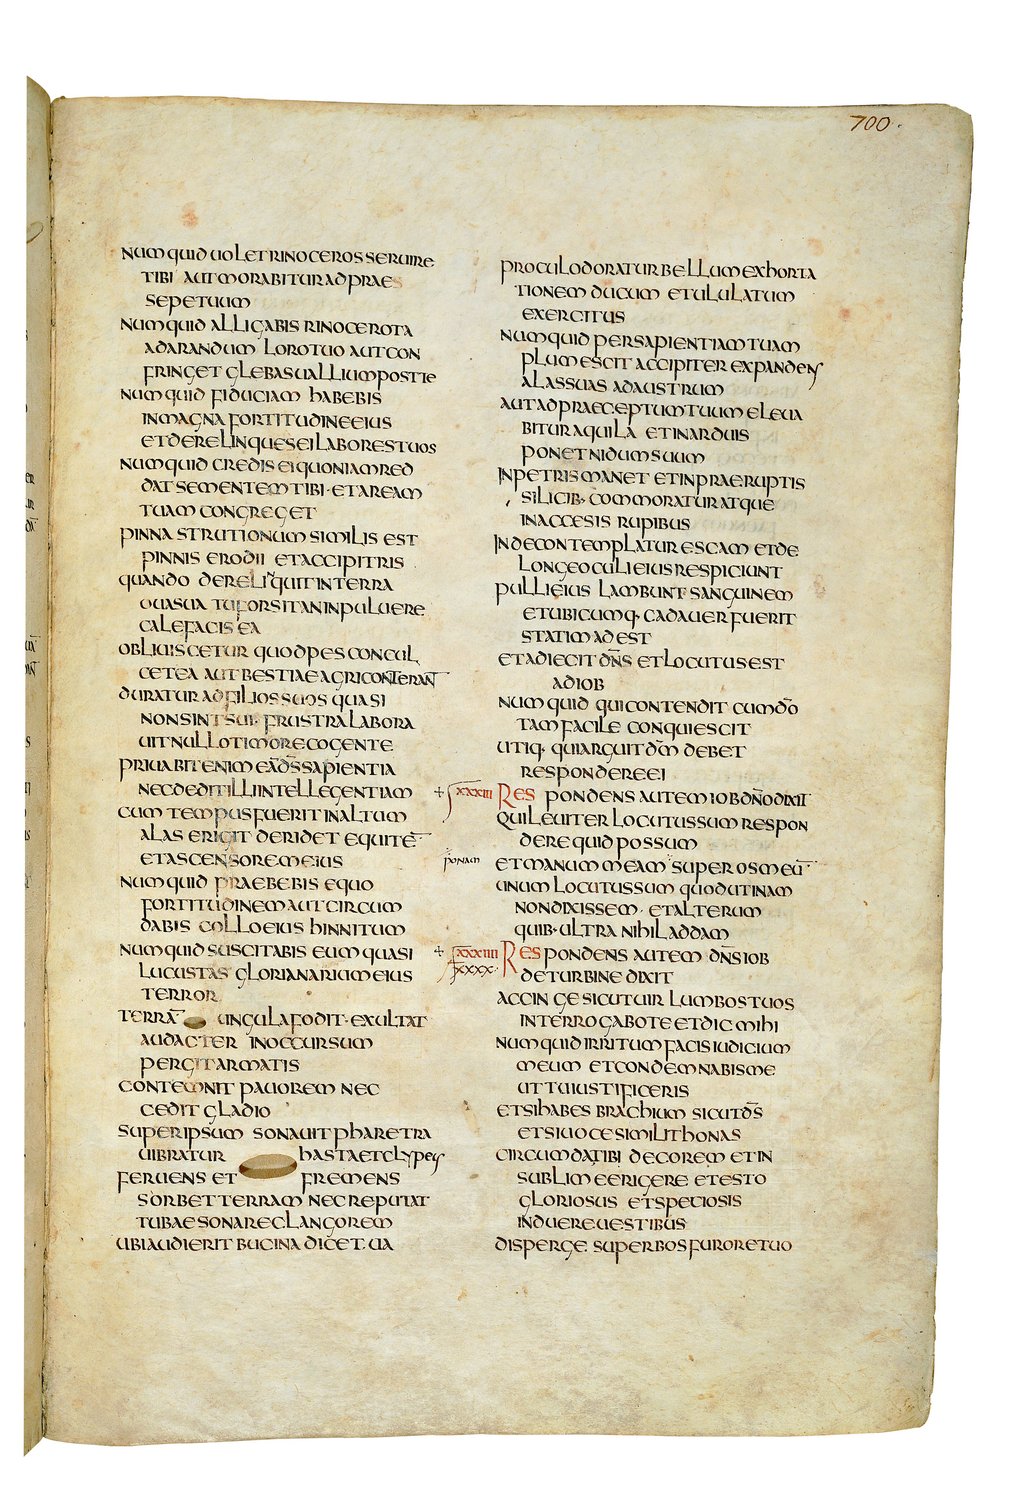 700.
NUMQUID UOLET RINOCEROS SERUIRE
TIBI AUT MORABITUR AD PRAE
SEPE TUUM
NUMQUID ALLIGABIS RINOCEROTA
AD ARANDUM LORO TUO AUT CON
FRINGET GLEBAS UALLIUM POST TE
NUMQUID FIDUCIAM HABEBIS
IN MAGNA FORTITUDINE EIUS
ET DERELINQUES EI LABORES TUOS
NUMQUID CREDIS EI QUONIAM RED
DAT SEMENTEM TIBI · ET AREAM
TUAM CONGREGET
PINNA STRUTIONUM SIMILIS EST
PINNIS ERODII ET ACCIPITRIS
QUANDO DERELIQUIT IN TERRA
OUA SUA TU FORSITAN IN PULUERE
CALEFACIS EA
OBLIUISCETUR QUOD PES CONCUL
CET EA AUT BESTIAE AGRI CONTERANT
DURATUR AD FILIOS SUOS QUASI
NON SINT SUI · FRUSTRA LABORA
UIT NULLO TIMORE COGENTE
PRIUABIT ENIM EĀ D̄S SAPIENTIA
NEC DEDIT ILLI INTELLEGENTIAM
CUM TEMPUS FUERIT IN ALTUM
ALAS ERIGIT DERIDET EQUITĒ
ET ASCENSOREM EIUS
NUMQUID PRAEBEBIS EQUO
FORTITUDINEM AUT CIRCUM
DABIS COLLO EIUS HINNITUM
NUMQUID SUSCITABIS EUM QUASI
LUCUSTAS GLORIA NARIUM EIUS
TERROR
TERRĀ UNGULA FODIT · EXULTAT
AUDACTER IN OCCURSUM
PERGIT ARMATIS
CONTEMNIT PAUOREM NEC
CEDIT GLADIO
SUPER IPSUM SONAUIT PHARETRA
UIBRATUR HASTA ET CLYPEUS
FERUENS ET FREMENS
SORBET TERRAM NEC REPUTAT
TUBAE SONARE CLANGOREM
UBI AUDIERIT BUCINA DICET UA
PROCUL ODORATUR BELLUM EXHORTA
TIONEM DUCUM ET ULULATUM
EXERCITUS
NUMQUID PER SAPIENTIAM TUAM
PLUMESCIT ACCIPITER EXPANDENS
ALAS SUAS AD AUSTRUM
AUT AD PRAECEPTUM TUUM ELEUA
BITUR AQUILA ET IN ARDUIS
PONET NIDUM SUUM
IN PETRIS MANET ET IN PRAERUPTIS
SILICIB· COMMORATUR ATQUE
INACCESIS RUPIBUS
INDE CONTEMPLATUR ESCAM ET DE
LONGE OCULI EIUS RESPICIUNT
PULLI EIUS LAMBUNT SANGUINEM
ET UBICUMQ· CADAUER FUERIT
STATIM ADEST
ET ADIECIT DN̄S ET LOCUTUS EST
AD IOB
NUMQUID QUI CONTENDIT CUM DŌ
TAM FACILE CONQUIESCIT
UTIQ· QUI ARGUIT DM̄ DEBET
RESPONDERE EI
+ XXXIII RESPONDENS AUTEM IOB DN̄O DIXIT
QUI LEUITER LOCUTUS SUM RESPON
DERE QUID POSSUM
PONAM ET MANUM MEAM SUPER OS MEŪ
UNUM LOCUTUS SUM QUOD UTINAM
NON DIXISSEM · ET ALTERUM
QUIB· ULTRA NIHIL ADDAM
+ XXXIIII RESPONDENS AUTEM DN̄S IOB
XXXX· DE TURBINE DIXIT
ACCINGE SICUT UIR LUMBOS TUOS
INTERROGABO TE ET DIC MIHI
NUMQUID IRRITUM FACIS IUDICIUM
MEUM ET CONDEMNABIS ME
UT TU IUSTIFICERIS
ET SI HABES BRACHIUM SICUT D̄S
ET SI UOCE SIMILI THONAS
CIRCUMDA TIBI DECOREM ET IN
SUBLIME ERIGERE ET ESTO
GLORIOSUS ET SPECIOSIS
INDUERE UESTIBUS
DISPERGE SUPERBOS FURORE TUO